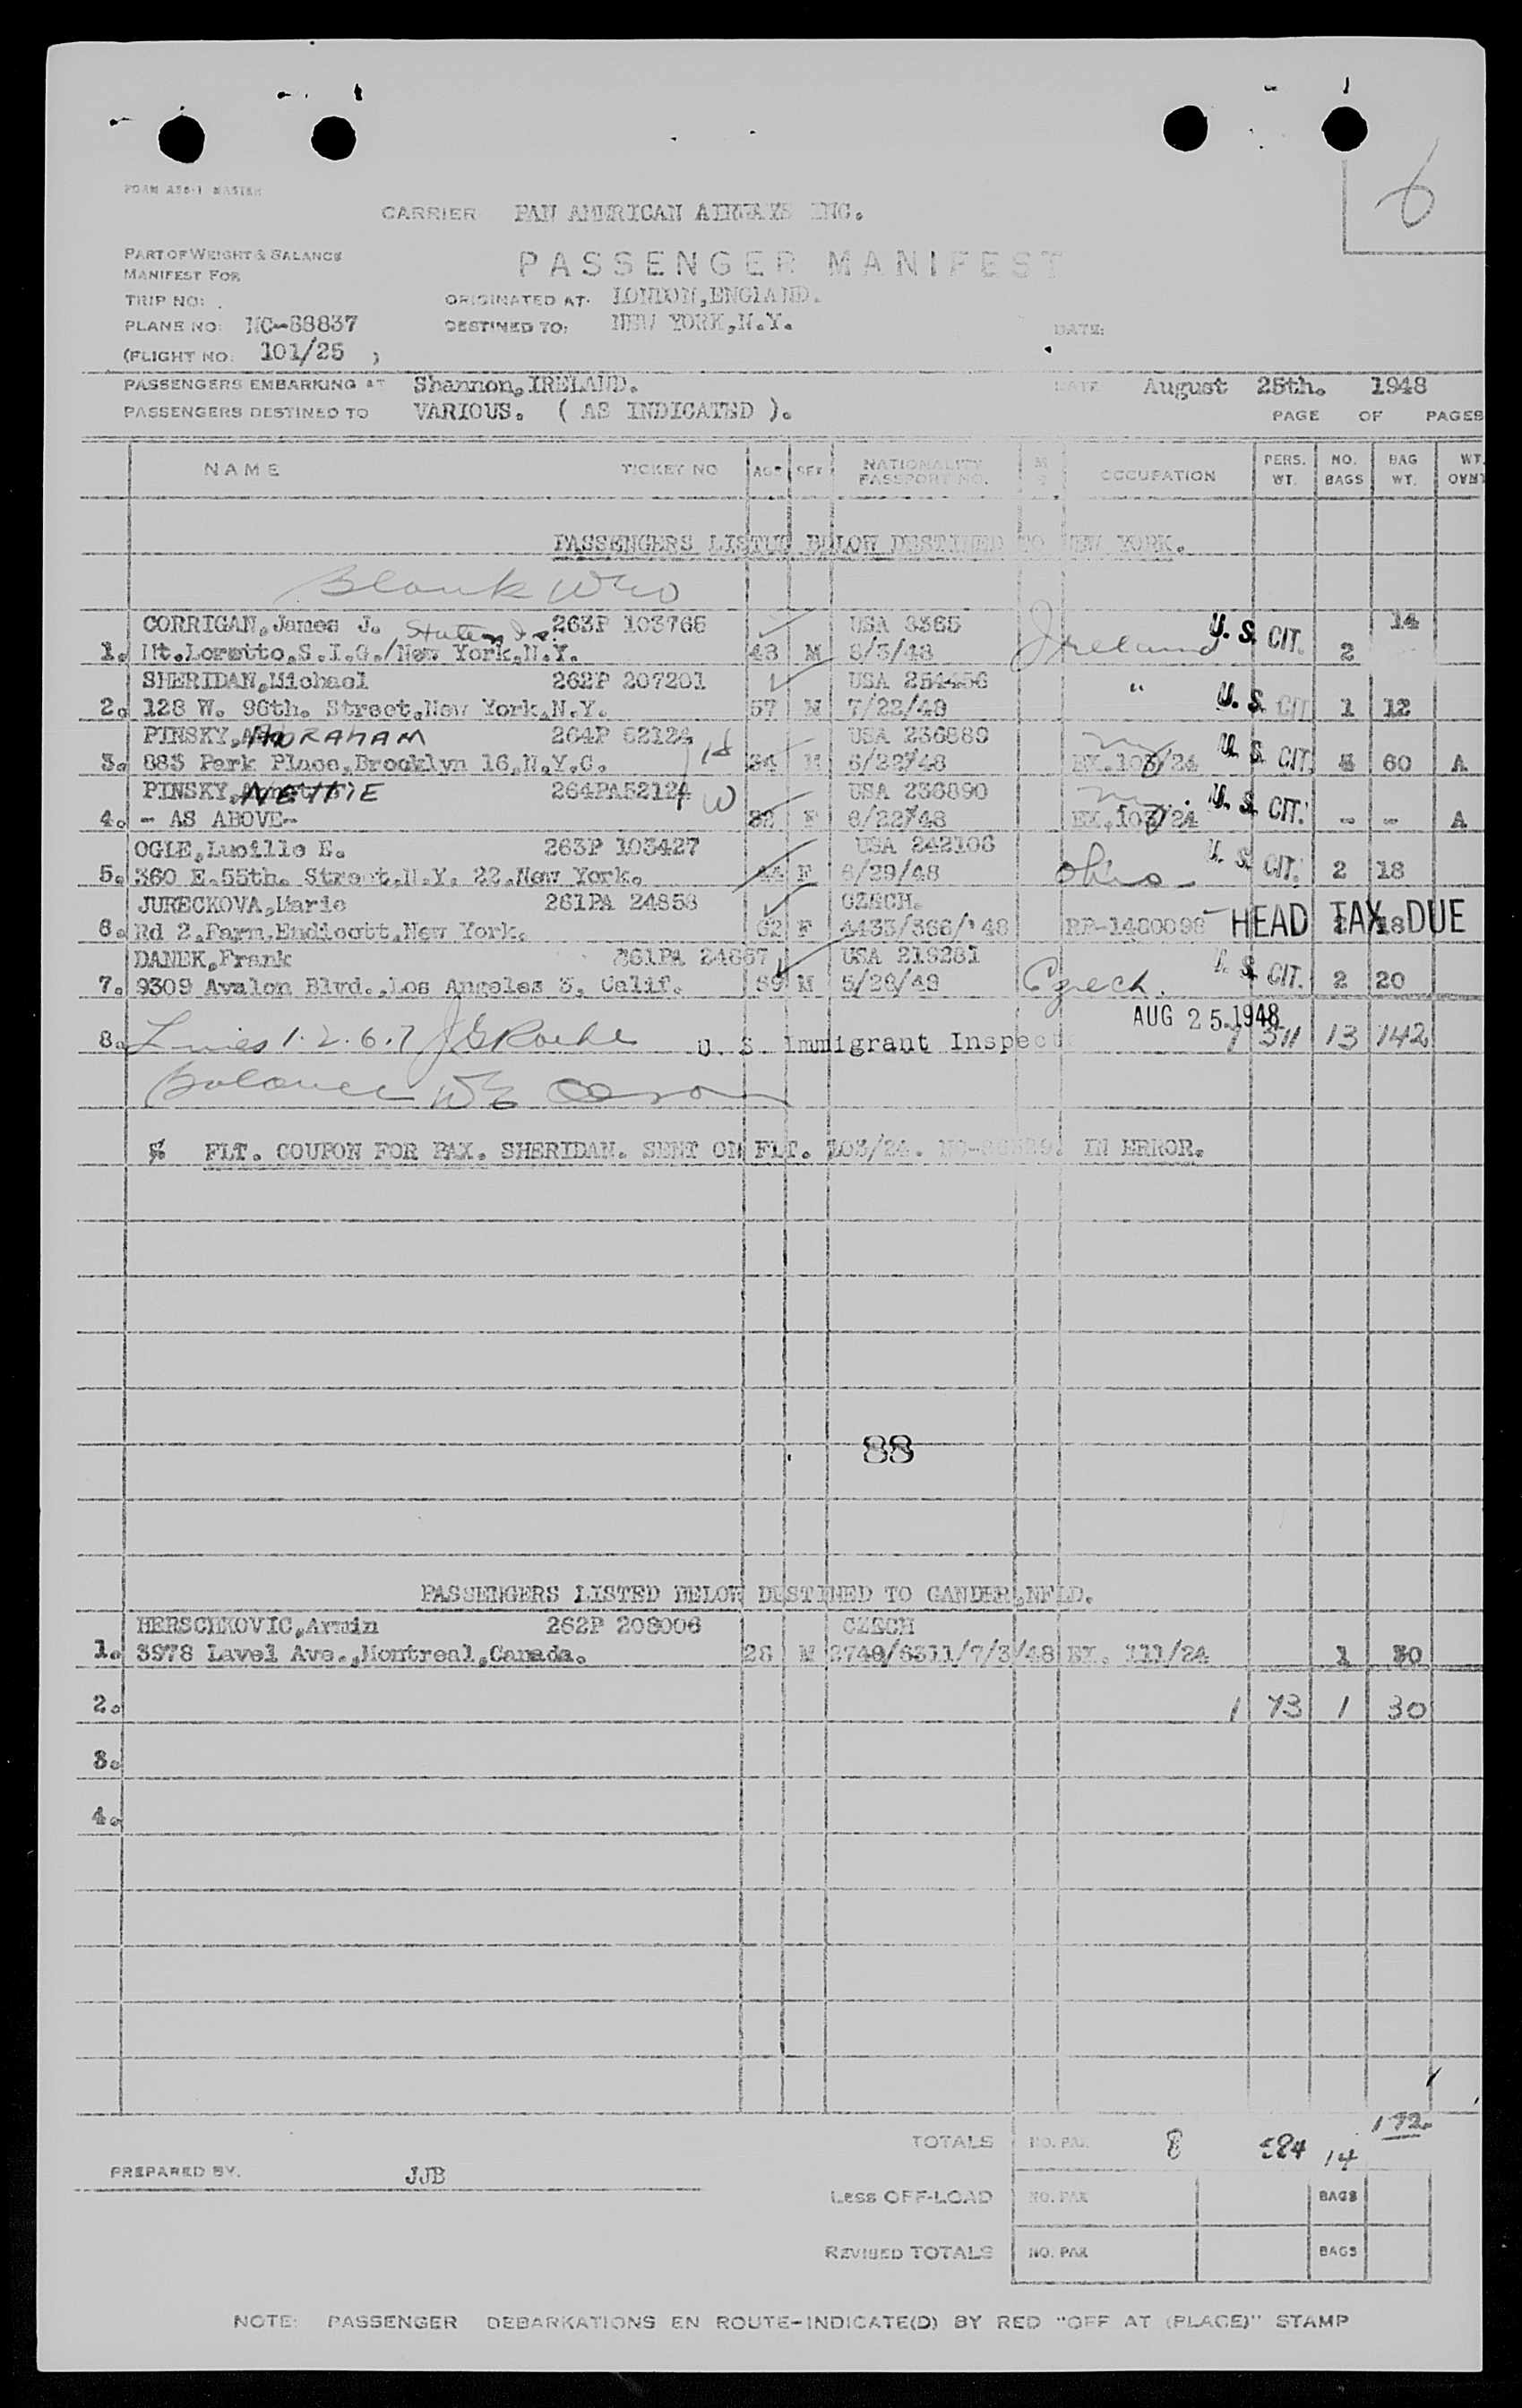 6
FORM
CARRIER PAN AMERICAN AIRWAYS INC.
PART OF WEIGHT & BALANCE
MANIFEST FOR
PASSENGER MANIFEST
TRIP NO:
ORIGINATED AT: LONDON, ENGLAND.
PLANE NO: NC-88837
DESTINED TO: NEW YORK, N.Y.
DATE:
(FLIGHT NO: 101/25 )
PASSENGERS EMBARKING AT Shannon, IRELAND. DATE August 25th. 1948
PASSENGERS DESTINED TO VARIOUS. ( AS INDICATED ). PAGE OF PAGES
NAME TICKET NO AGE SEX NATIONALITY PASSPORT NO. M S OCCUPATION PERS. WT. NO. BAGS BAG WT. WT.
PASSENGERS LISTED BELOW DESTINED TO NEW YORK.
CORRIGAN, James J. 263P 103765 USA 14
1. Mt. Loretto, S.I.O./New York, N.Y. 48 M Ireland U.S. CIT. 2
SHERIDAN, Michael 262P 207201 USA 254456
2. 128 W. 96th. Street, New York, N.Y. 57 M 7/22/48 " U.S. CIT 1 12
PINSKY, ABRAHAM 264P USA
3. 883 Park Place, Brooklyn 16, N.Y.C. 34 M EX. 103/24 U.S. CIT. 60 A
PINSKY, NETTIE W USA
4. - AS ABOVE- F EX. 103/24 U.S. CIT. - - A
OGLE, Lucille E. 263P 103427 USA 242106
5. 360 E. 55th. Street, N.Y. 22, New York. 44 F 6/29/48 Ohio U.S. CIT. 2 18
JURECKOVA, Marie 261PA 24858 CZECH.
6. Rd 2, Farm, Endicott, New York. 62 F 4433/366/'48 HEAD TAX DUE 18
DANEK, Frank 261PA 24867 USA 219281
7. 9309 Avalon Blvd., Los Angeles 3, Calif. 59 M Czech. U.S. CIT. 2 20
AUG 25 1948
8. Lines 1.2.6.7 U. S. Immigrant Inspect 7 511 13 142
Balance
FLT. COUPON FOR PAX. SHERIDAN. SENT ON FLT. 103/24. IN ERROR.
88
PASSENGERS LISTED BELOW DESTINED TO GANDER, NFLD.
HERSCHKOVIC, Armin 262P 208006 CZECH
1. 3978 Lavel Ave., Montreal, Canada. 28 M 2740/6311/7/3/48 EX. 111/24 1 30
2. 1 73 1 30
3.
4.
TOTALS NO. PAX. 8 584 14 172
PREPARED BY. JJB
Less OFF-LOAD NO. PAX BAGS
REVISED TOTALS NO. PAX BAGS
NOTE: PASSENGER DEBARKATIONS EN ROUTE-INDICATE(D) BY RED "OFF AT (PLACE)" STAMP